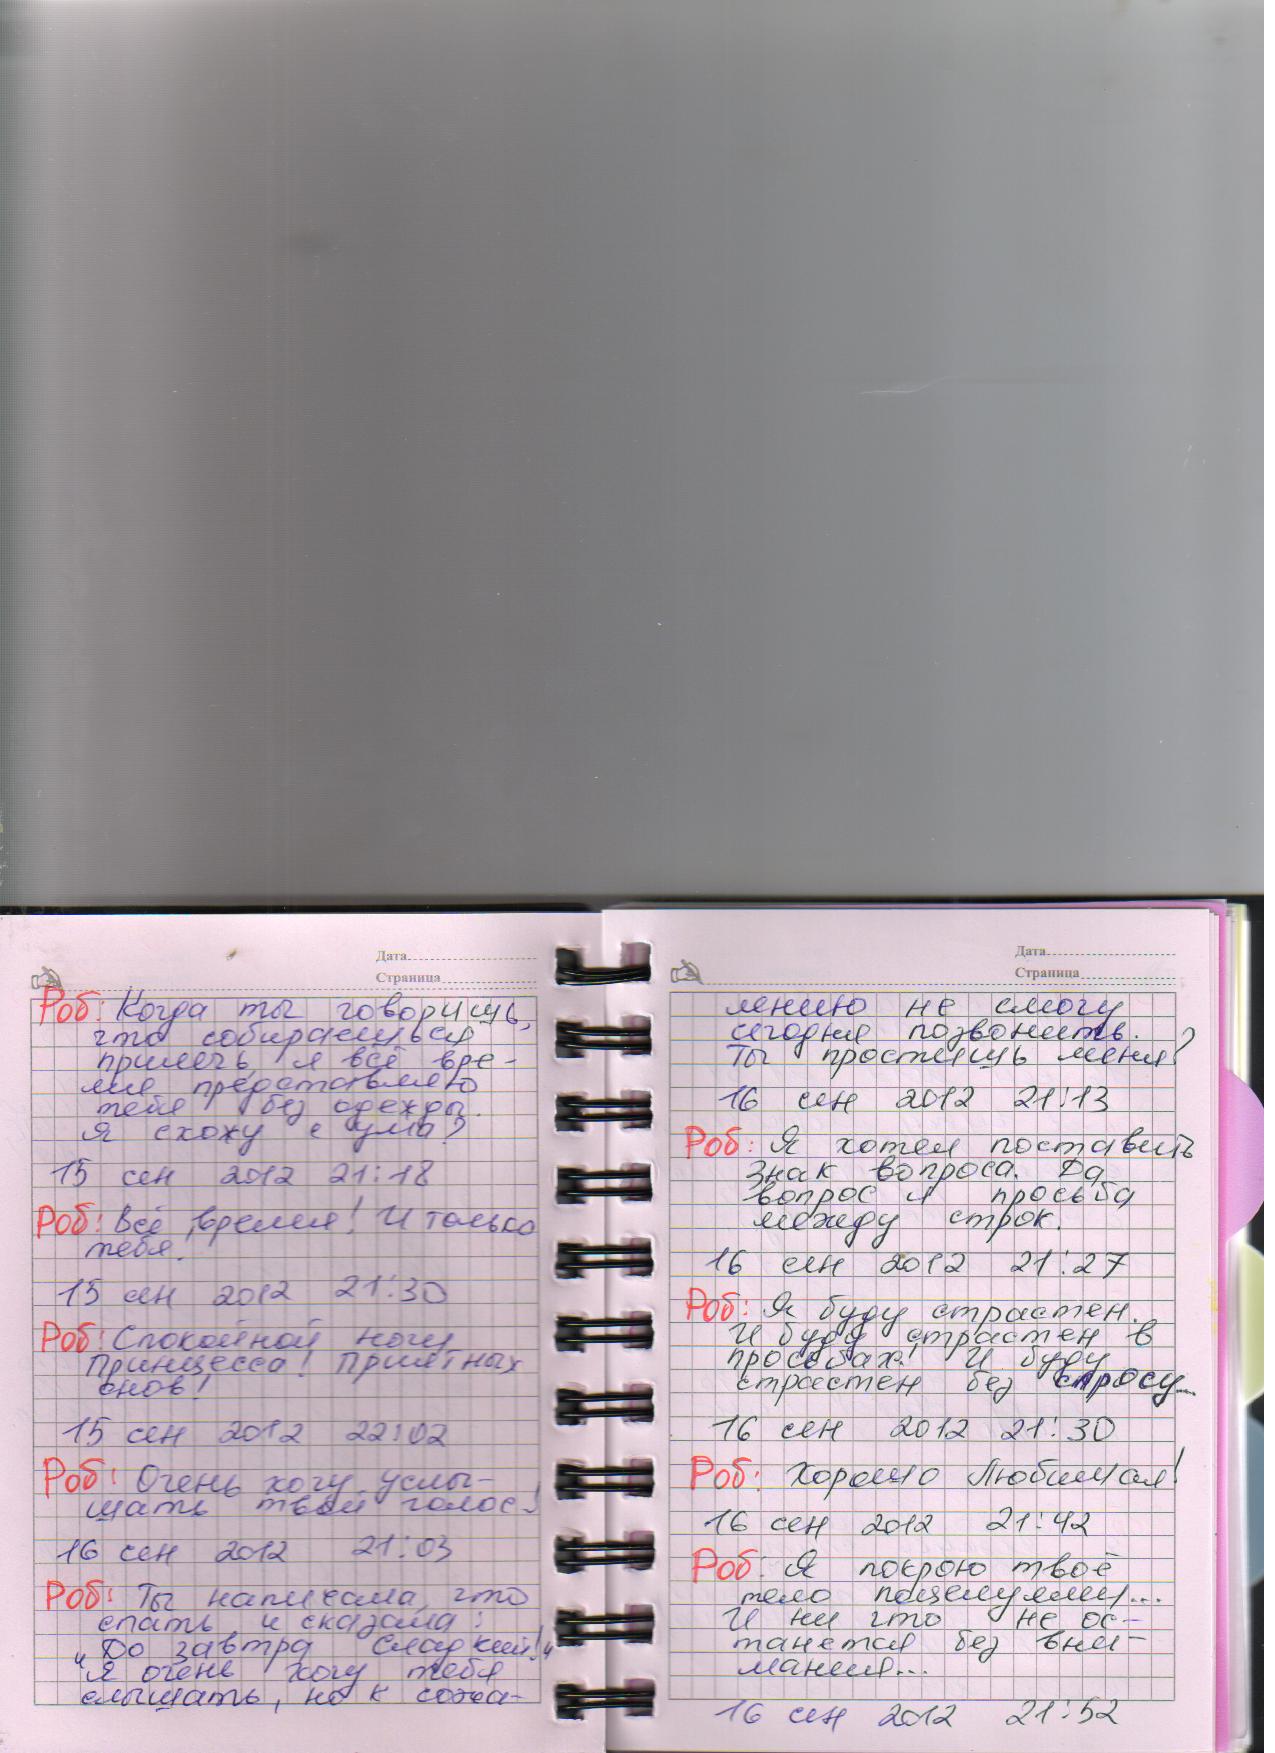 Дата
Страница
Роб: Когда ты говоришь,
что собираешься
прилечь, я всё вре-
мя представляю
тебя без одежды.
Я схожу с ума?
15 сен 2012 21:18
Роб: Всё время! И только
тебя.
15 сен 2012 21:30
Роб: Спокойной ночи
Принцесса! Приятных
снов!
15 сен 2012 22:02
Роб: Очень хочу услы-
шать твой голос!
16 сен 2012 21:03
Роб: Ты написала, что
спать и сказала:
"До завтра Сладкий!"
Я очень хочу тебя
слышать, но к сожа-
Дата
Страница
лению не смогу
сегодня позвонить.
Ты простишь меня?
16 сен 2012 21:13
Роб: Я хотел поставить
знак вопроса. Да
вопрос и просьба
между строк.
16 сен 2012 21:27
Роб: Я буду страстен.
И буду страстен в
просьбах! И буду
страстен без спросу...
16 сен 2012 21:30
Роб: Хорошо Любимая!
16 сен 2012 21:42
Роб: Я покрою твоё
тело поцелуями...
И ни что не ос-
танется без вни-
мания...
16 сен 2012 21:52